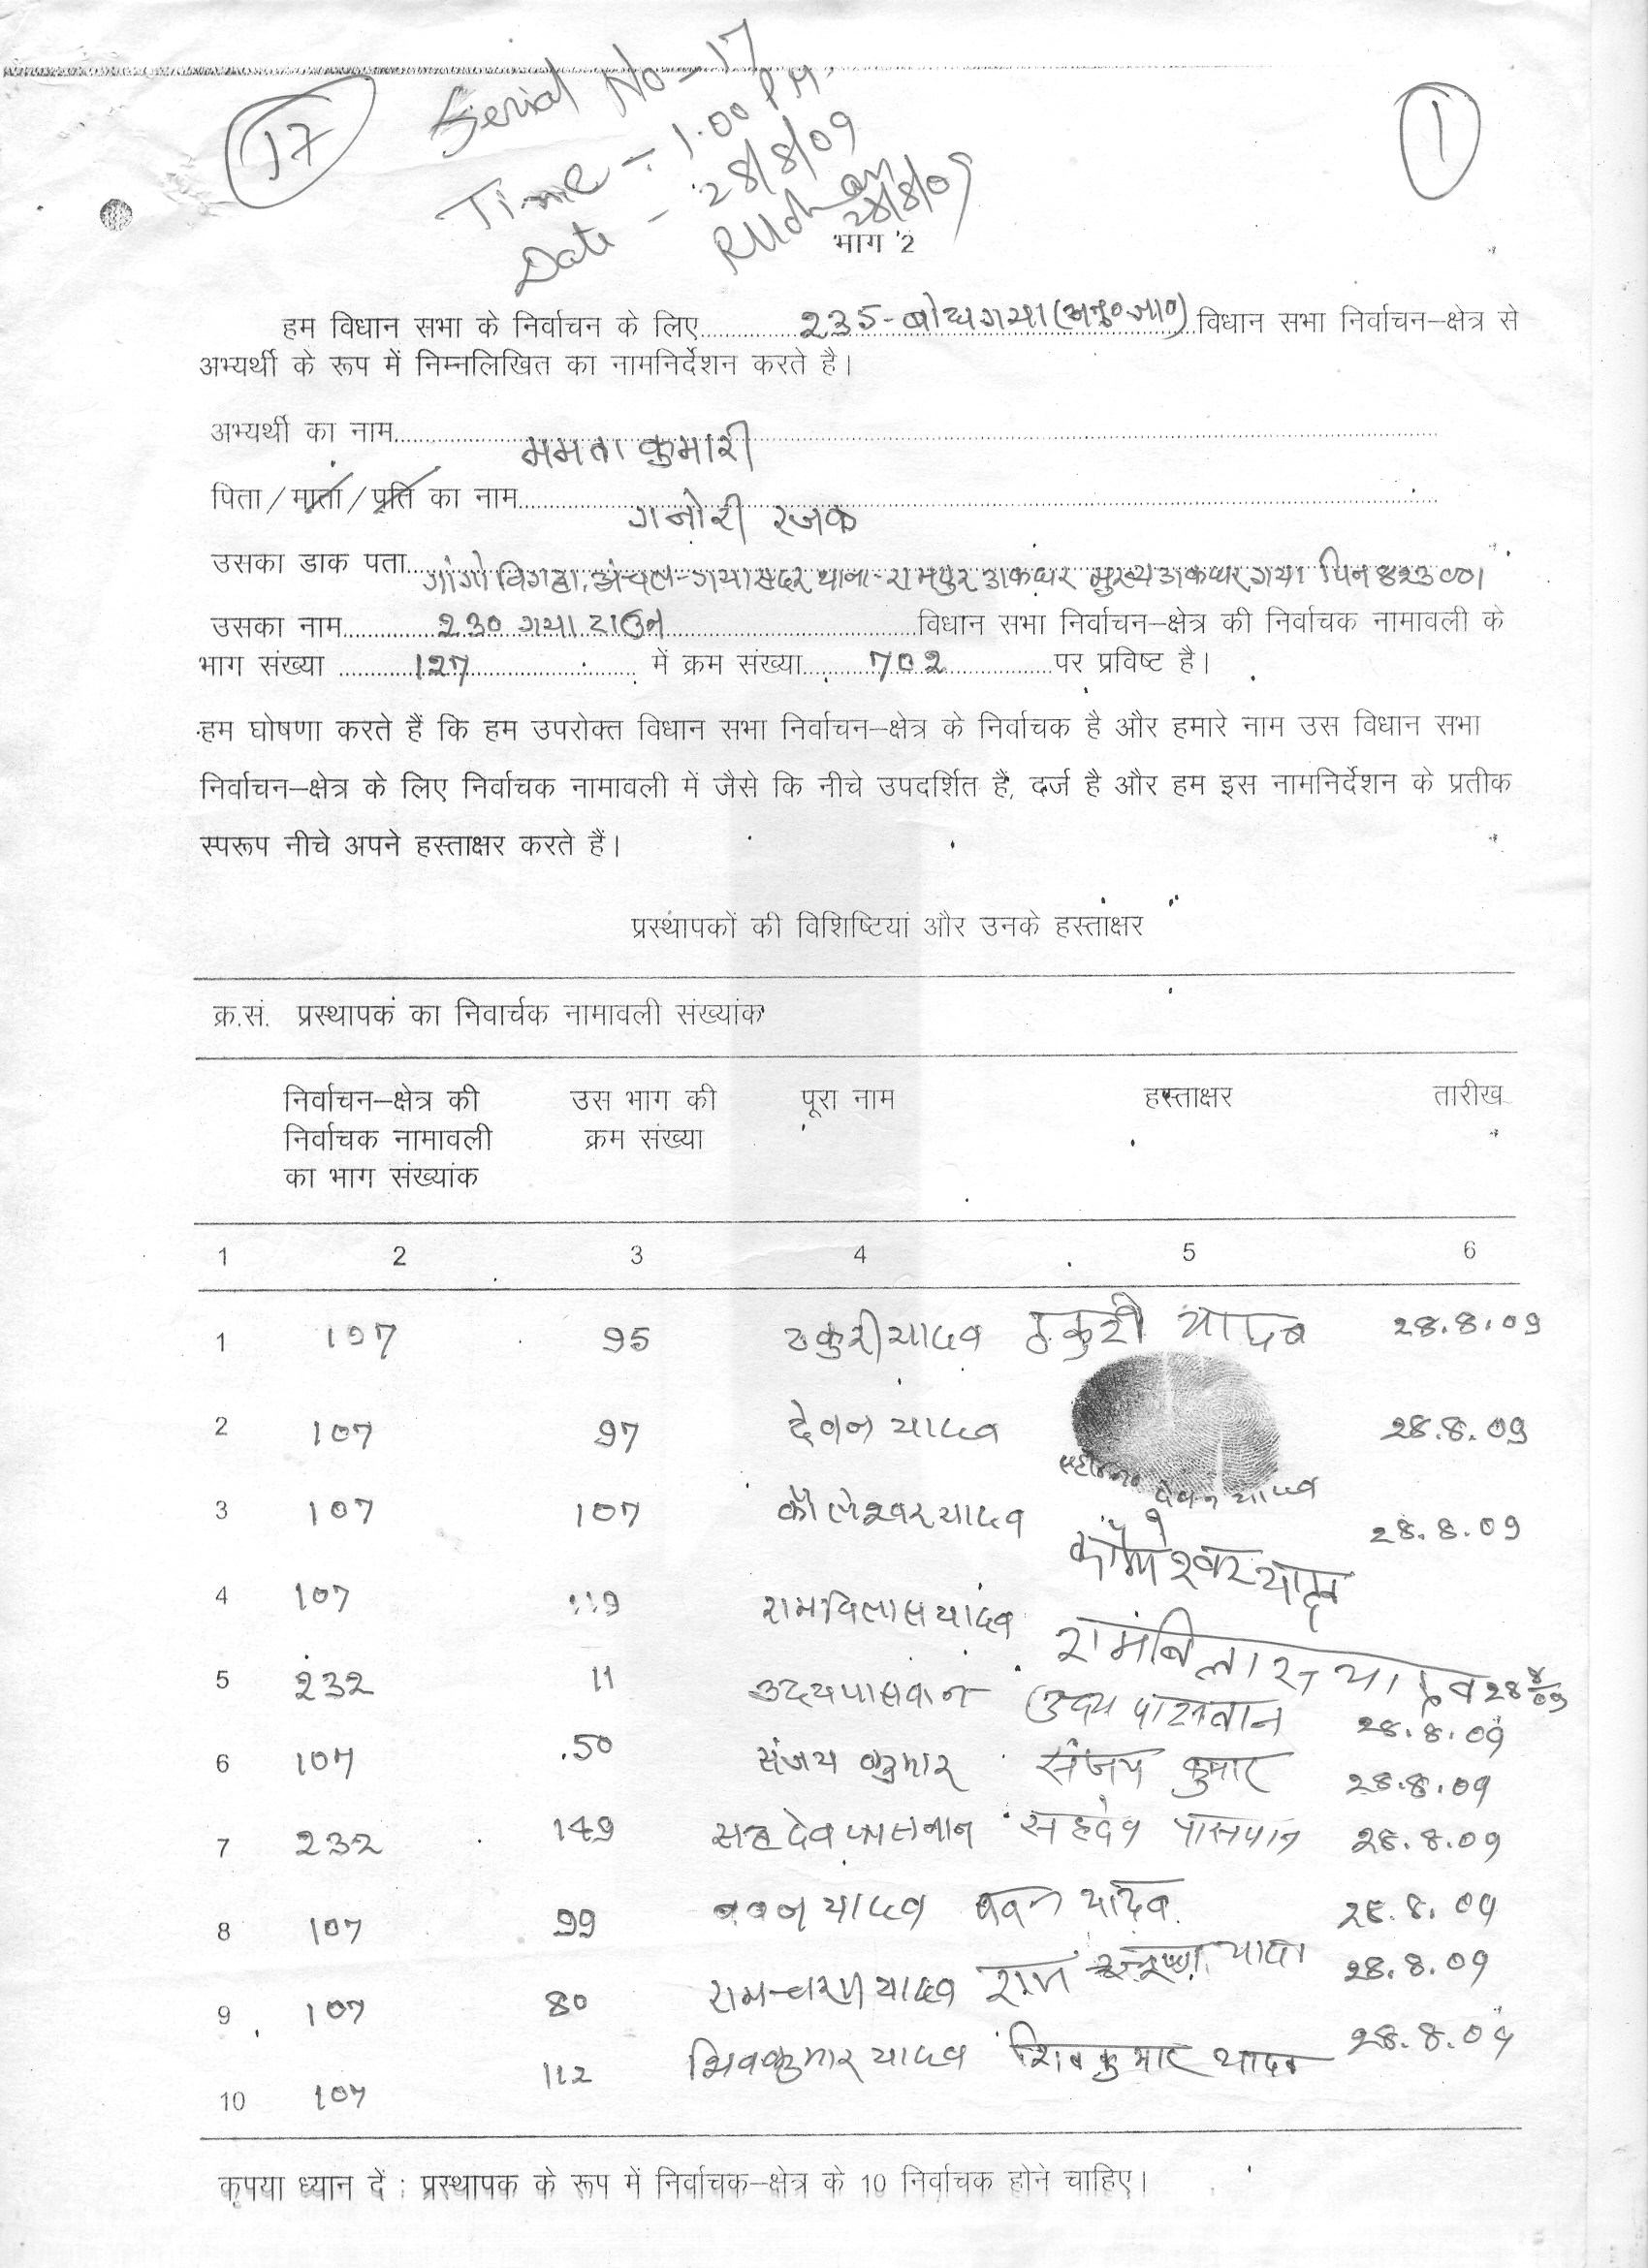 17
Serial No - 17
1
Time - 1.00 PM.
Date - 28/8/09
28/8/09
भाग 2
हम विधान सभा के निर्वाचन के लिए 235-बोधगया(अनु०जा०) विधान सभा निर्वाचन-क्षेत्र से
अभ्यर्थी के रूप में निम्नलिखित का नामनिर्देशन करते है।
अभ्यर्थी का नाम ममता कुमारी
पिता/माता/पति का नाम गनोरी रजक
उसका डाक पता गांगो विगहा, अंचल-गया सदर थाना-रामपुर डाकघर मुख्य डाकघर, गया पिन 823001
उसका नाम 230 गया टाउन विधान सभा निर्वाचन-क्षेत्र की निर्वाचक नामावली के
भाग संख्या 127 में क्रम संख्या 702 पर प्रविष्ट है।
हम घोषणा करते हैं कि हम उपरोक्त विधान सभा निर्वाचन-क्षेत्र के निर्वाचक है और हमारे नाम उस विधान सभा
निर्वाचन-क्षेत्र के लिए निर्वाचक नामावली में जैसे कि नीचे उपदर्शित हैं, दर्ज है और हम इस नामनिर्देशन के प्रतीक
स्परूप नीचे अपने हस्ताक्षर करते हैं।
प्रस्थापकों की विशिष्टियां और उनके हस्ताक्षर
क्र.सं. प्रस्थापक का निवार्चक नामावली संख्यांक
निर्वाचन-क्षेत्र की उस भाग की पूरा नाम हस्ताक्षर तारीख
निर्वाचक नामावली क्रम संख्या
का भाग संख्यांक
1 2 3 4 5 6
1 107 95 ठकुरी यादव ठकुरी यादव 28.8.09
2 107 97 देवन यादव 28.8.09
देवन यादव
3 107 107 कौलेश्वर यादव कौलेश्वर यादव 28.8.09
4 107 119 रामविलास यादव रामबिलास यादव 28 8/09
5 232 11 उदय पासवान उदय पासवान 28.8.09
6 107 50 संजय कुमार संजय कुमार 28.8.09
7 232 149 सहदेव पासवान सहदेव पासवान 28.8.09
8 107 99 बबन यादव बबन यादव 28.8.09
9 107 80 यादव राम यादव 28.8.09
10 107 112 शिवकुमार यादव शिवकुमार यादव 28.8.09
कृपया ध्यान दें : प्रस्थापक के रूप में निर्वाचक-क्षेत्र के 10 निर्वाचक होने चाहिए।